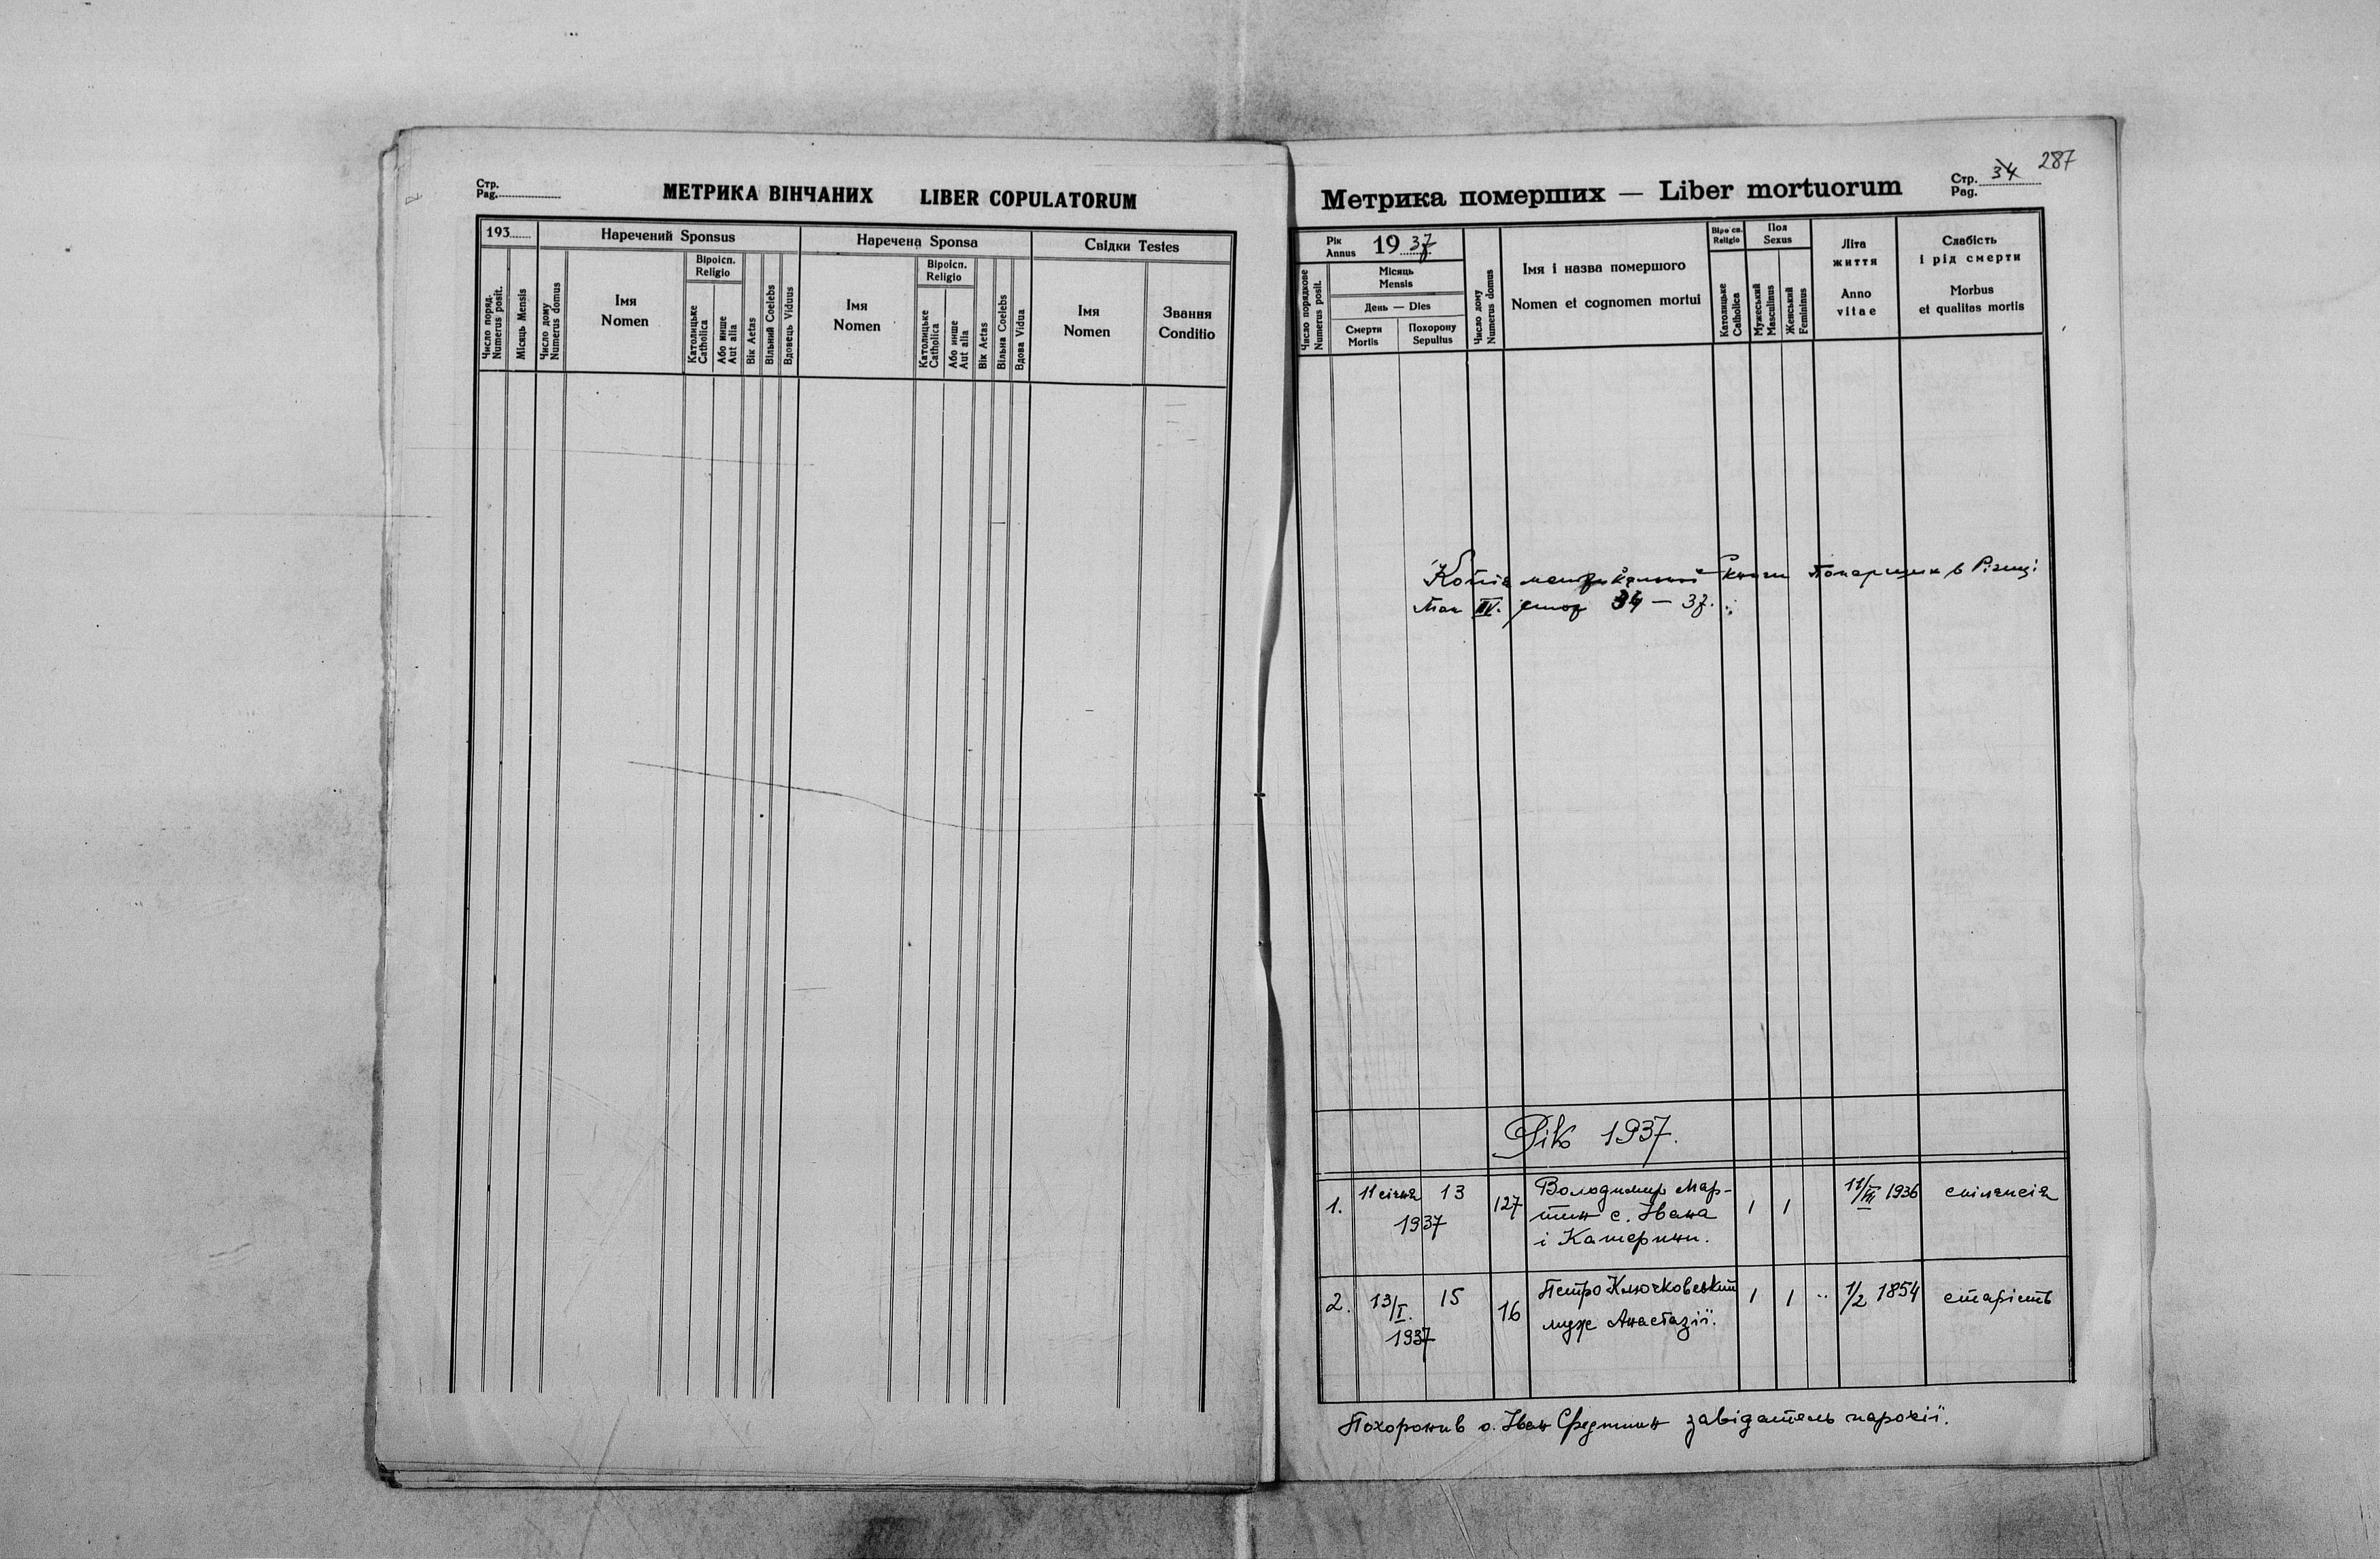 Стр.
Pag.
МЕТРИКА ВІНЧАНИХ LIBER COPULATORUM
193
Наречений Sponsus
Наречена Sponsa
Свідки Testes
Число поряд.
Numerus posit.
Місяць Mensis
Число дому
Numerus domus
Імя
Nomen
Віроісп.
Religio
Католицьке
Catholica
Або инше
Aut alia
Вік Aetas
Вільний Coelebs
Вдовець Viduus
Імя
Nomen
Віроісп.
Religio
Католицьке
Catholica
Або инше
Aut alia
Вік Aetas
Вільна Coelebs
Вдова Vidua
Імя
Nomen
Звання
Conditio
287
Метрика померших — Liber mortuorum
Стр. 34
Pag.
Рік
Annus 1937
Число порядкове
Numerus posit.
Місяць
Mensis
День — Dies
Смерти
Mortis
Похорону
Sepultus
Число дому
Numerus domus
Імя і назва помершого
Nomen et cognomen mortui
Віроісп.
Religio
Католицьке
Catholica
Пол
Sexus
Мужеський
Masculinus
Женський
Femininus
Літа
життя
Anno
vitae
Слабість
і рід смерти
Morbus
et qualitas mortis
Копія метрикальної книги Померших в
IV. 34 — 37.
Рік 1937.
1. 11 січня 13 127 Володимир Мар-
1937 тин с. Івана
і Катерини.
1 1 11/III 1936 епілепсія
2. 13/I. 15 16 Петро Ключковський
1937 муж Анастазії.
1 1 " 1/2 1854 старість
Похоронив о. Іван завідатель парохії.